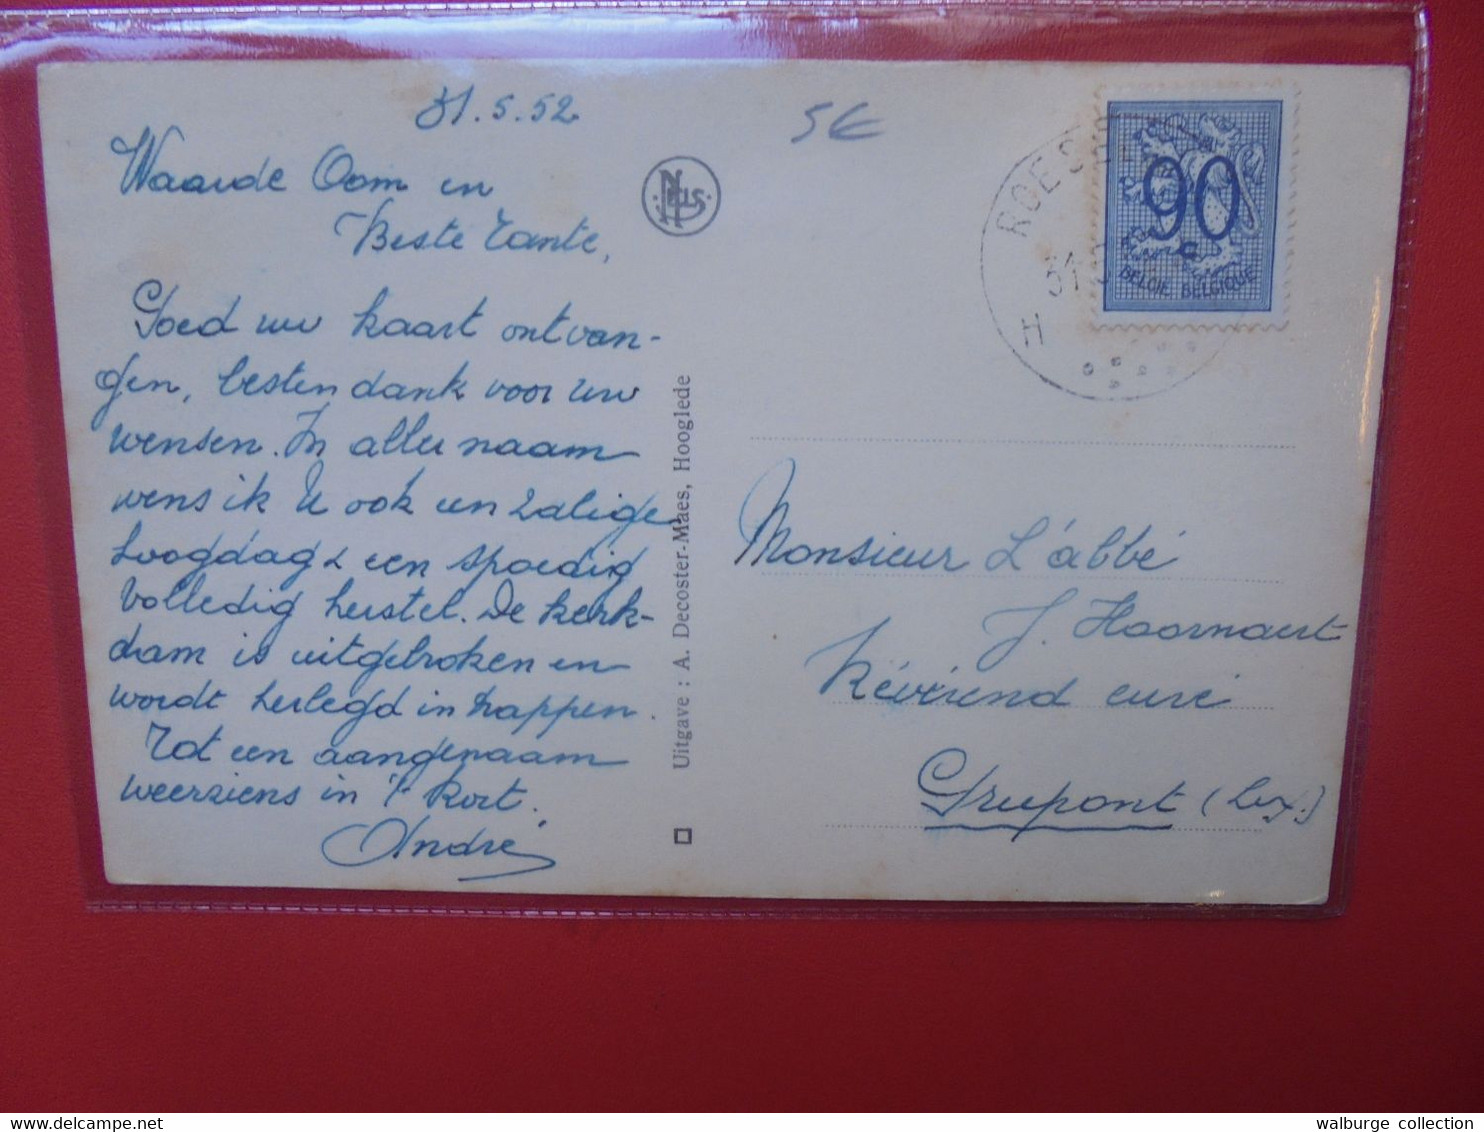 31.5.52
Waarde Oom en
Beste Tante,
Goed uw kaart ontvan-
gen, besten dank voor uw
wensen. In aller naam
wens ik U ook een zalige
hoogdag & een spoedig
volledig herstel. De kerk-
dam is uitgebroken en
wordt herlegd in trappen.
Tot een aangenaam
weerziens in 't kort.
André
NELS
Uitgave : A. Decoster-Maes, Hooglede
5€
ROES
31
H
90
c
BELGIE BELGIQUE
Monsieur L'abbé
J. Hoornaert
Révérend curé
Grupont (Lux.)
delcampe.net
walburge collection